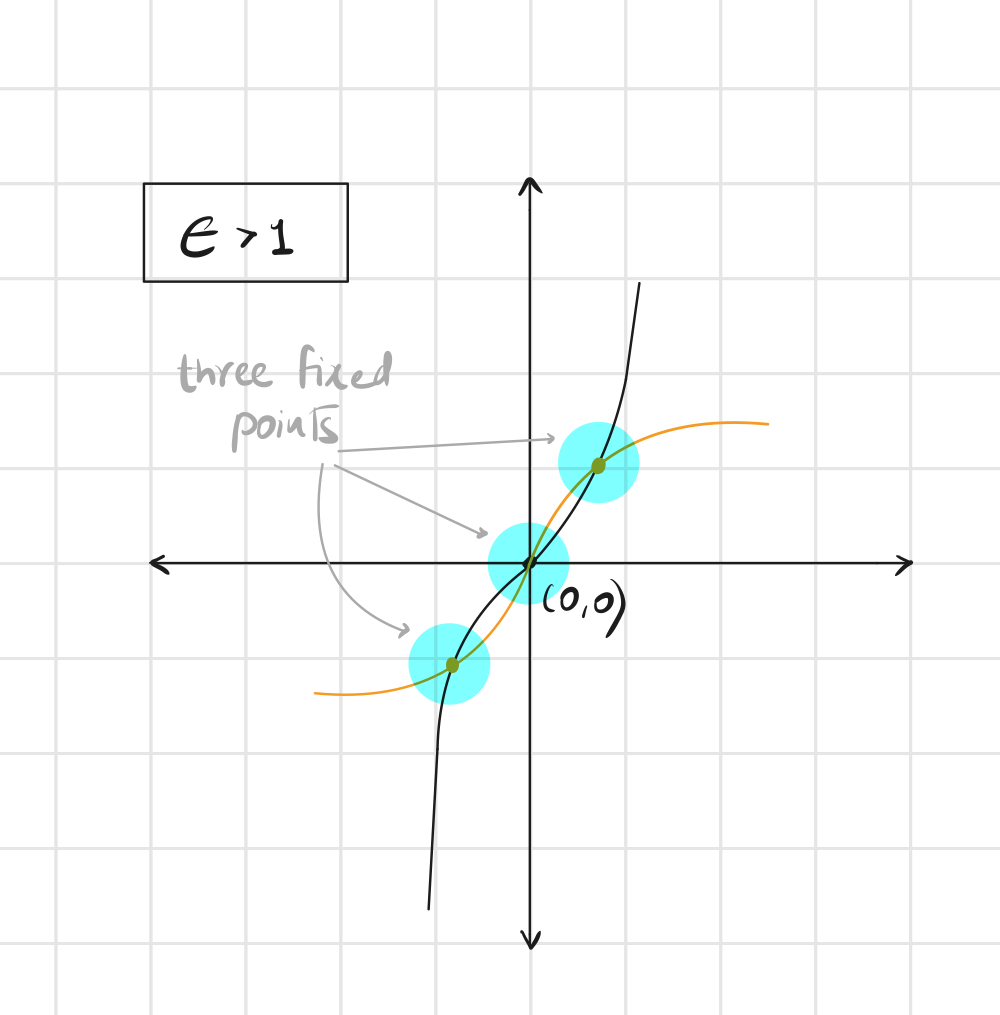 ϵ > 1
three fixed
points
(0,0)